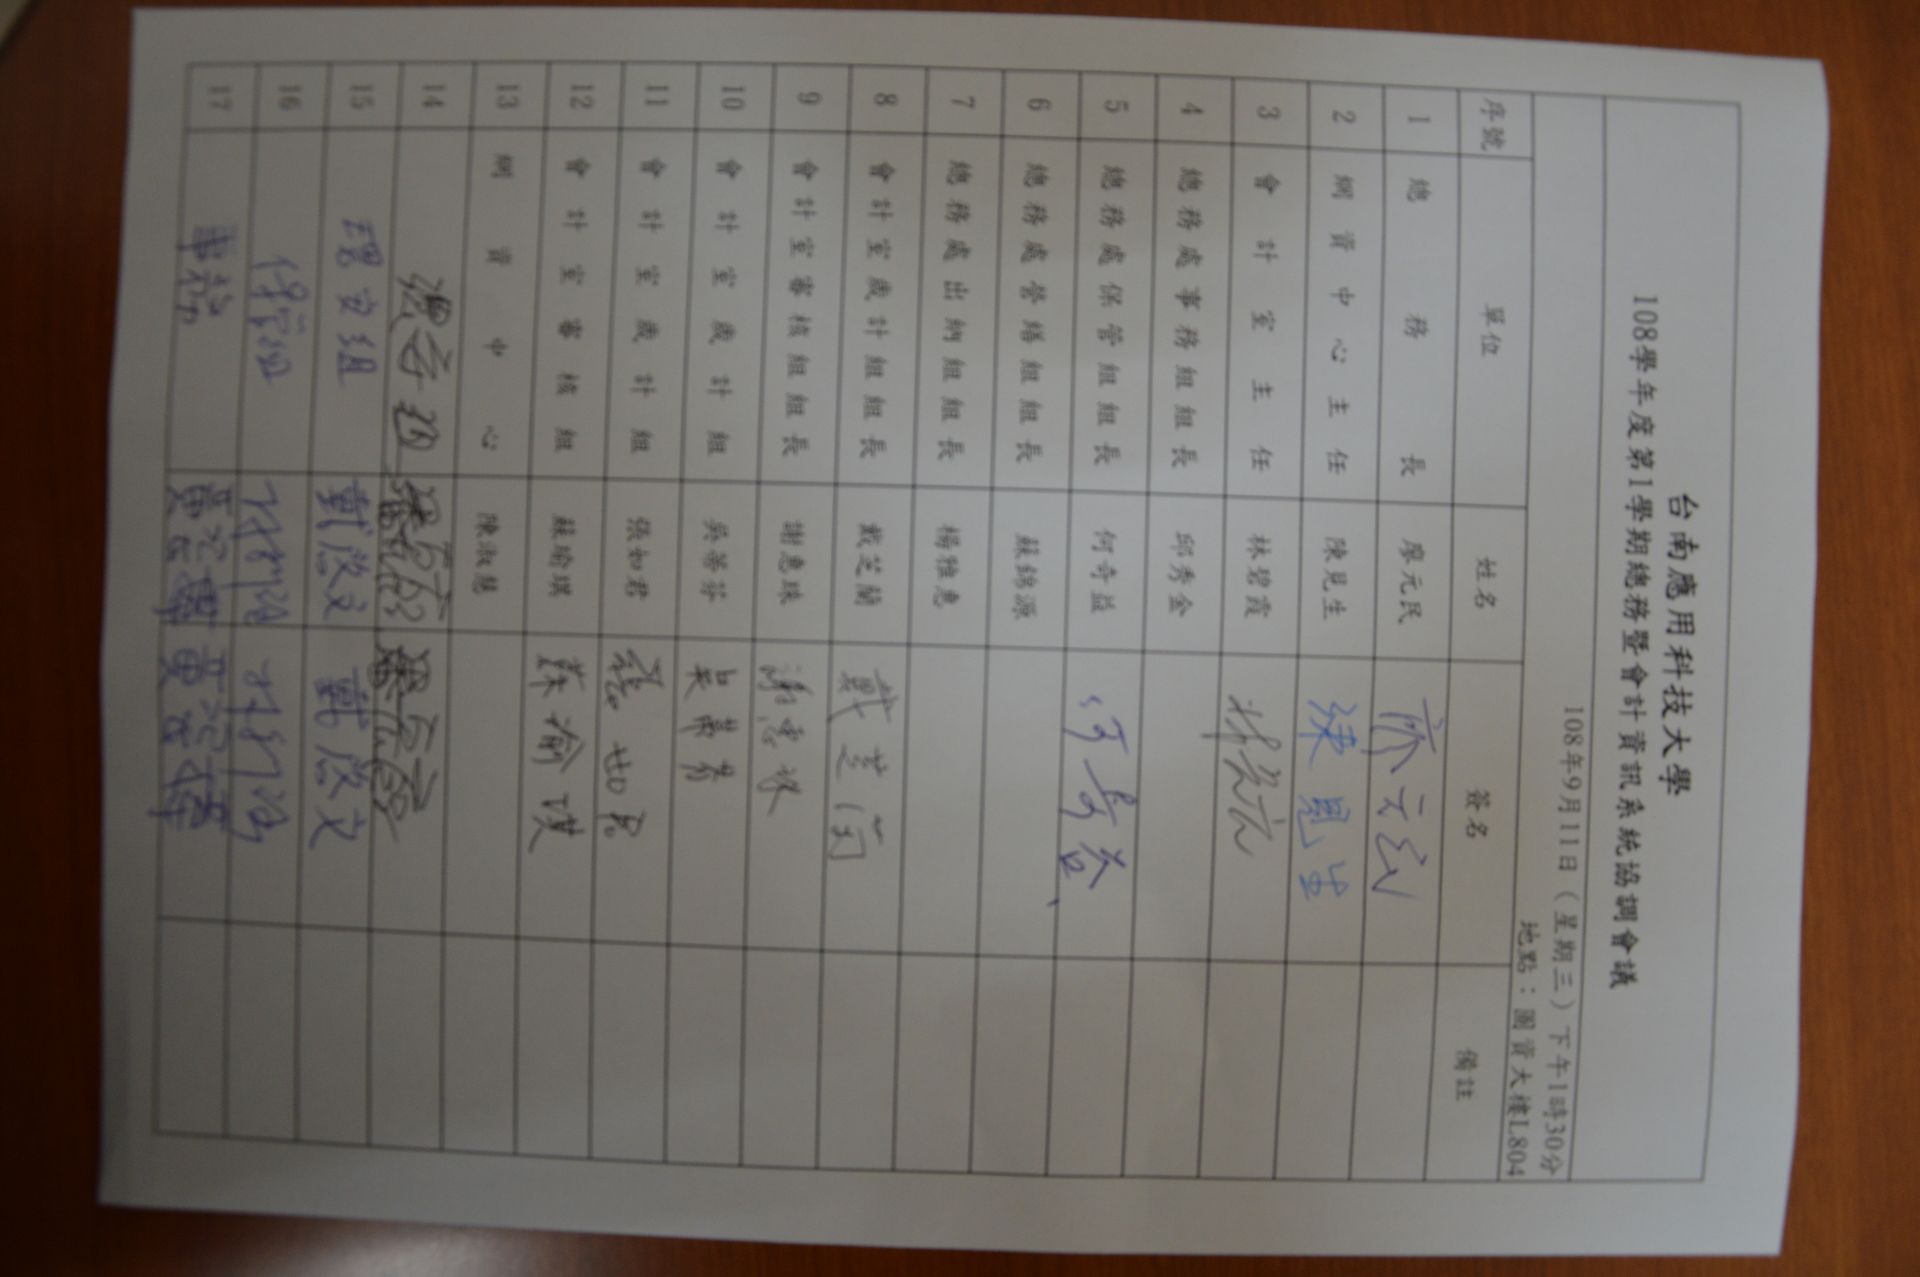 台南應用科技大學
108學年度第1學期總務暨會計資訊系統協調會議
108年9月11日（星期三）下午1時30分
地點：圖資大樓L804
序號 單位 姓名 簽名 備註
1 總務長 廖元民
2 網資中心主任 陳見生 陳見生
3 會計室主任 林碧霞
4 總務處事務組組長 邱秀金
5 總務處保管組組長 何奇益 何奇益
6 總務處營繕組組長 蘇錦源
7 總務處出納組組長 楊雅惠
8 會計室歲計組組長 戴芝蘭 戴芝蘭
9 會計室審核組組長 謝惠珠 謝惠珠
10 會計室歲計組
11 會計室歲計組 張如君 張如君
12 會計室審核組 蘇瑜琪 蘇瑜琪
13 網資中心 陳淑慧
14
15 文組 戴啟文 戴啟文
16 保管組
17 事務